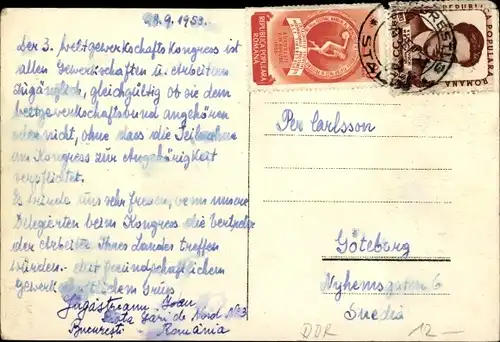 28.9.1953.
Der 3. Weltgewerkschafts Kongress ist
allen Gewerkschaften u. Arbeitern
zugänglich, gleichgültig ob sie dem
Weltgewerkschaftsbund angehören
oder nicht, ohne dass die Teilnahme
am Kongress zur Angehörigkeit
verpflichtet.
Es würde uns sehr freuen, wenn unsere
Delegierten beim Kongress die Vertreter
der Arbeiter Ihres Landes treffen
würden. - Mit freundschaftlichem
Gewerkschaftlichem Gruss
Ioan
Gara de Nord No 3
București - România
REPUBLICA POPULARA
ROMANA
REPUBLICA POPULARA
ROMANA
Per Carlsson
Göteborg
Nyhemsgatan 6
Suedia
DDR 12-